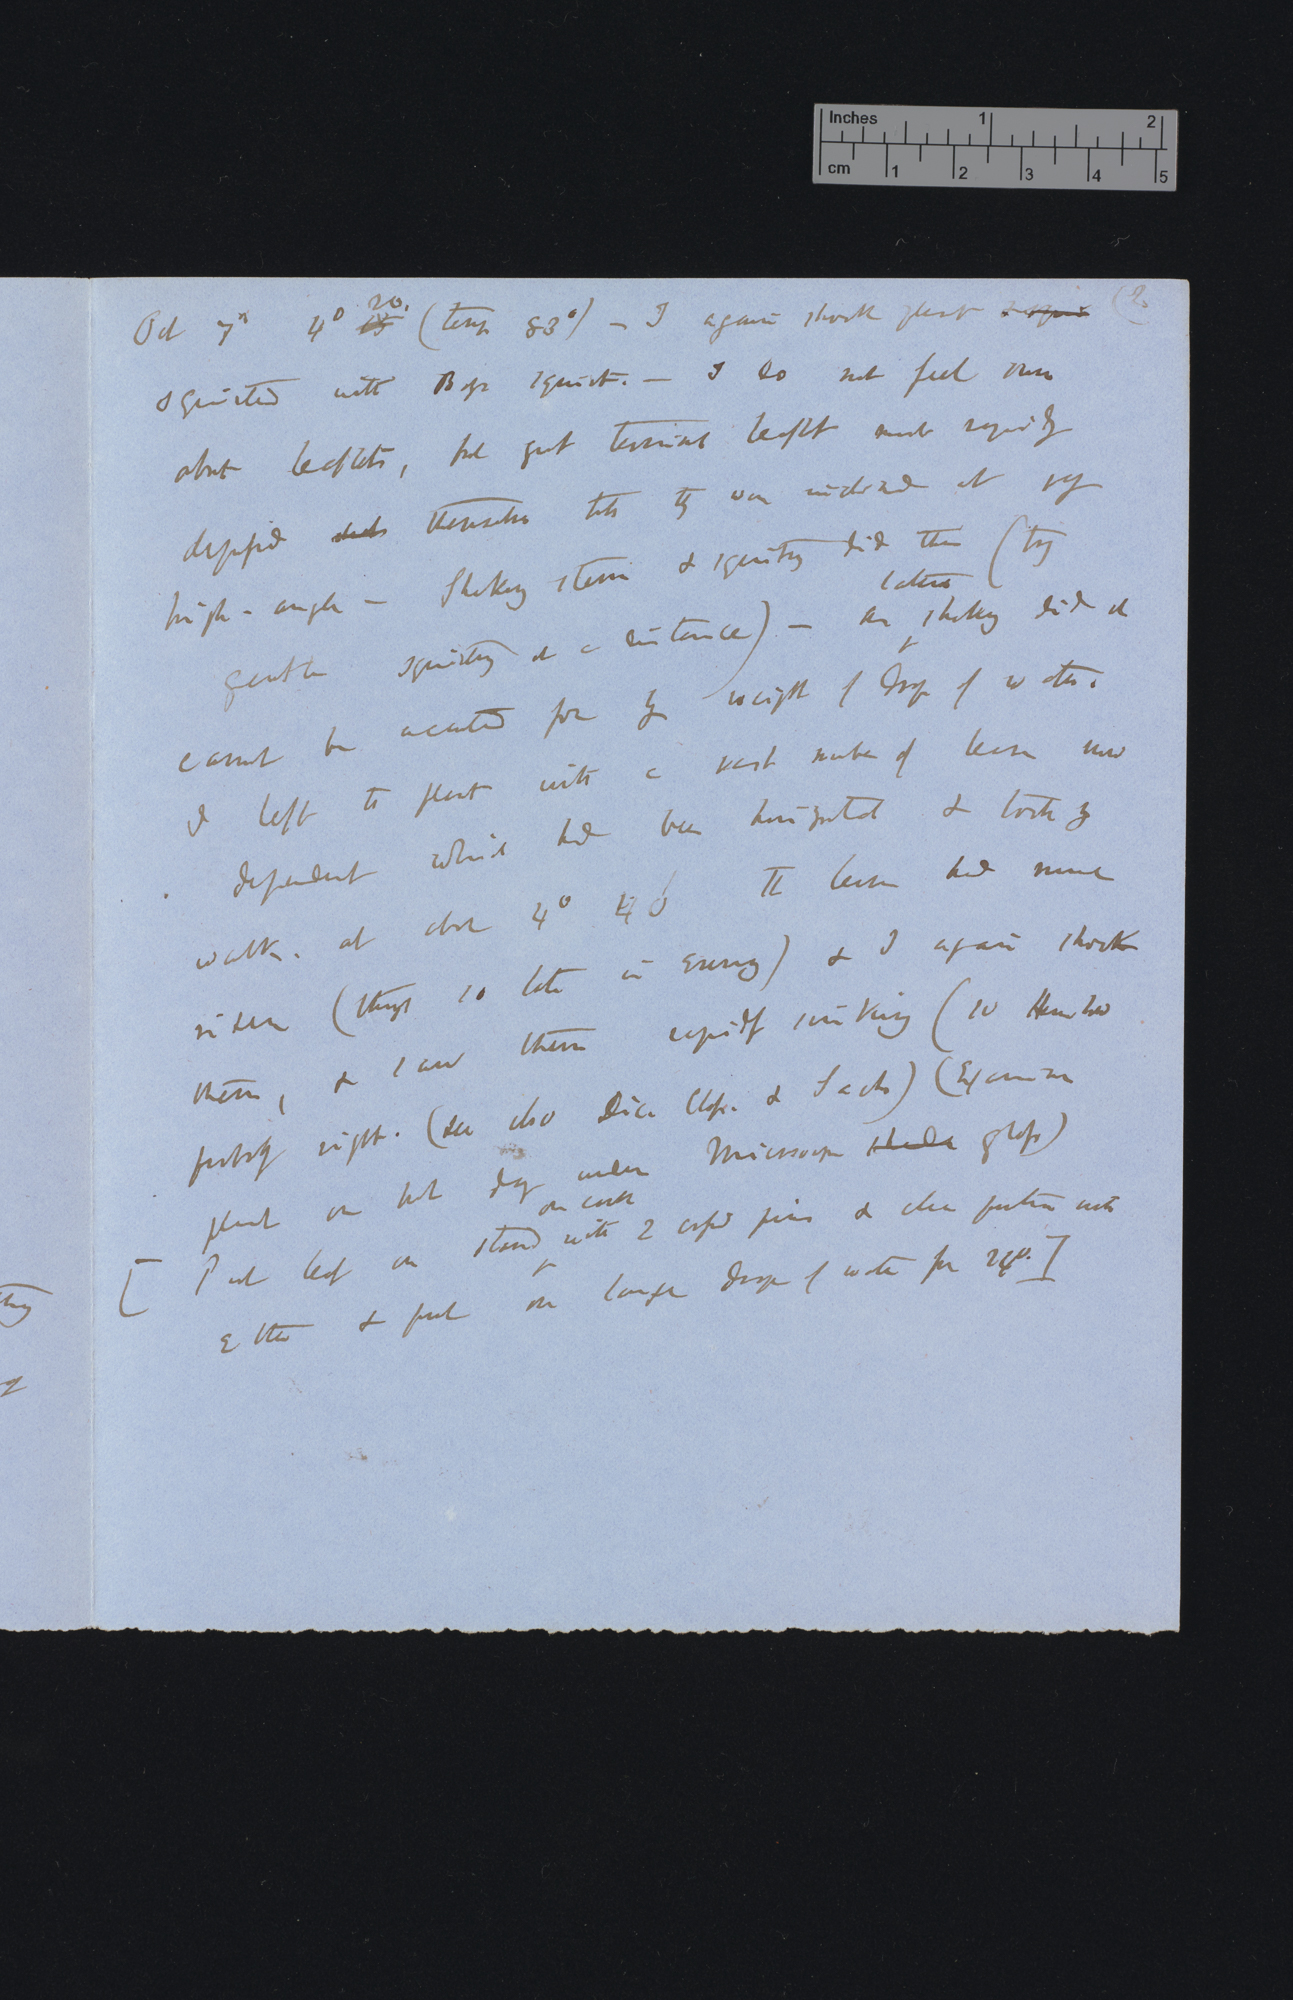 Inches 1 2
cm 1 2 3 4 5
(2
Oct 7th 4° 20. (temp 83°) — I again shook plant
squirted with Boys squirt. — I do not feel sure
about leaflets, but great terminal leaflet most rapidly
depressed themselves till they were inclined at very
high angle — Shaking stem & squirting did this (try
gentle squirting at a distance) — as latter shaking did it
cannot be accounted for by weight of drops of water.
I left the plant with a vast number of leaves now
dependent which had been horizontal & took my
walk. at about 4° 40' The leaves had now
risen (though so late in evening) & I again shook
them, & saw them rapidly sinking (so
probably right. (see also & Sachs) (Examine
plant on hot day under Microscope glass)
[Put leaf on stand on cork with 2 pins & clean portion with
ether & put on large drop of water for 24°.]